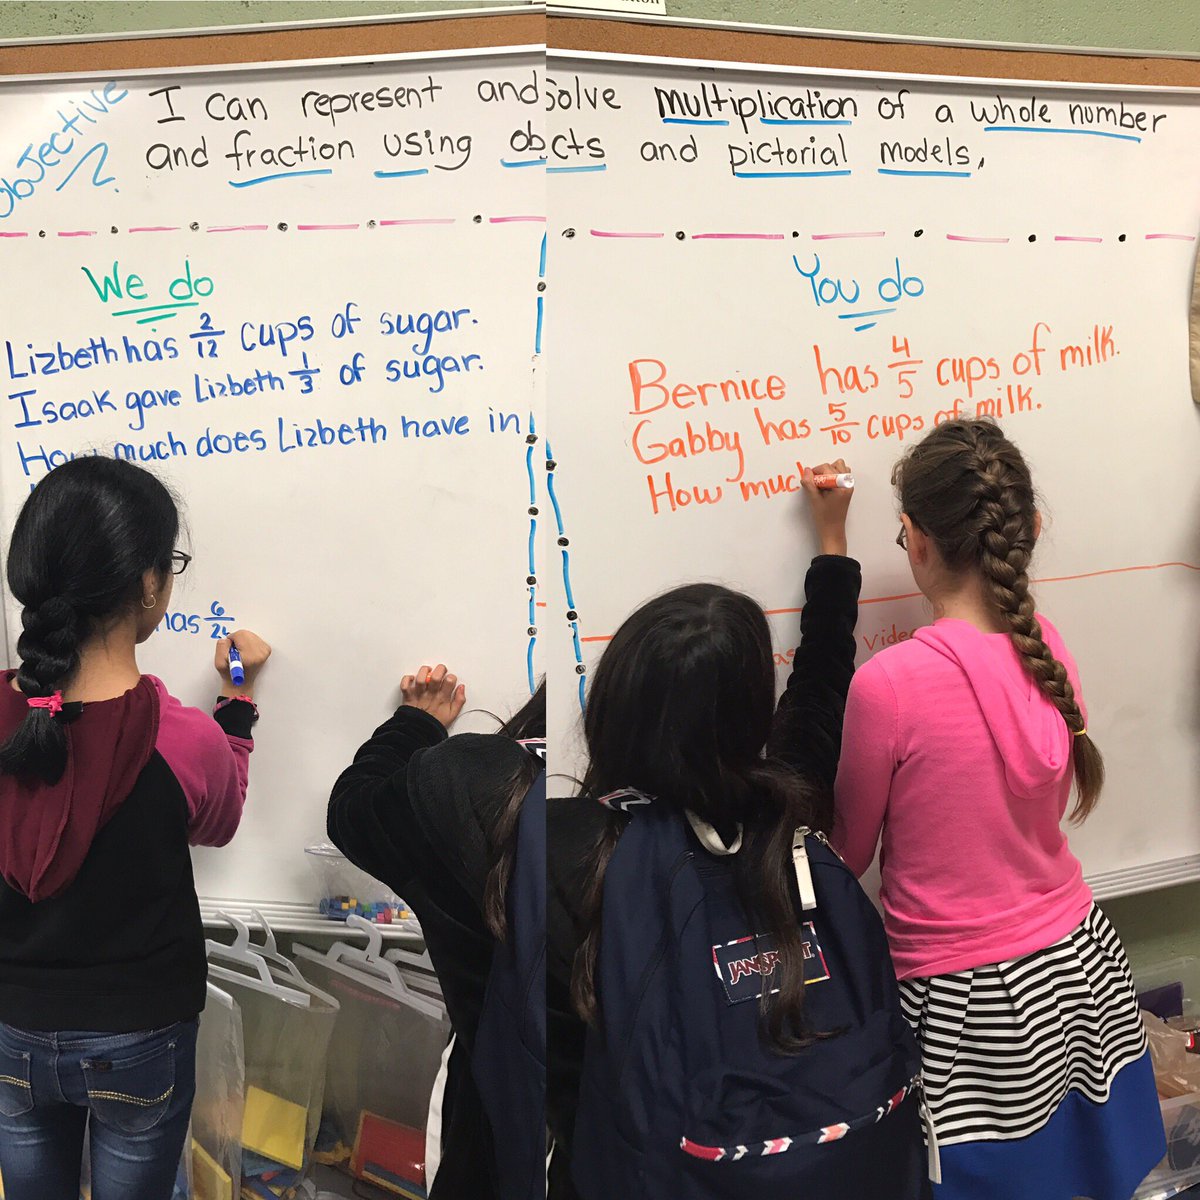 Objective
I can represent and Solve multiplication of a whole number
and fraction using obcts and pictorial models.
We do
Lizbeth has 2/12 cups of sugar.
Isaak gave Lizbeth 1/3 of sugar.
How much does Lizbeth have in
has 6/24
You do
Bernice has 4/5 cups of milk.
Gabby has 5/10 cups of milk.
How much
Video
JANSPORT